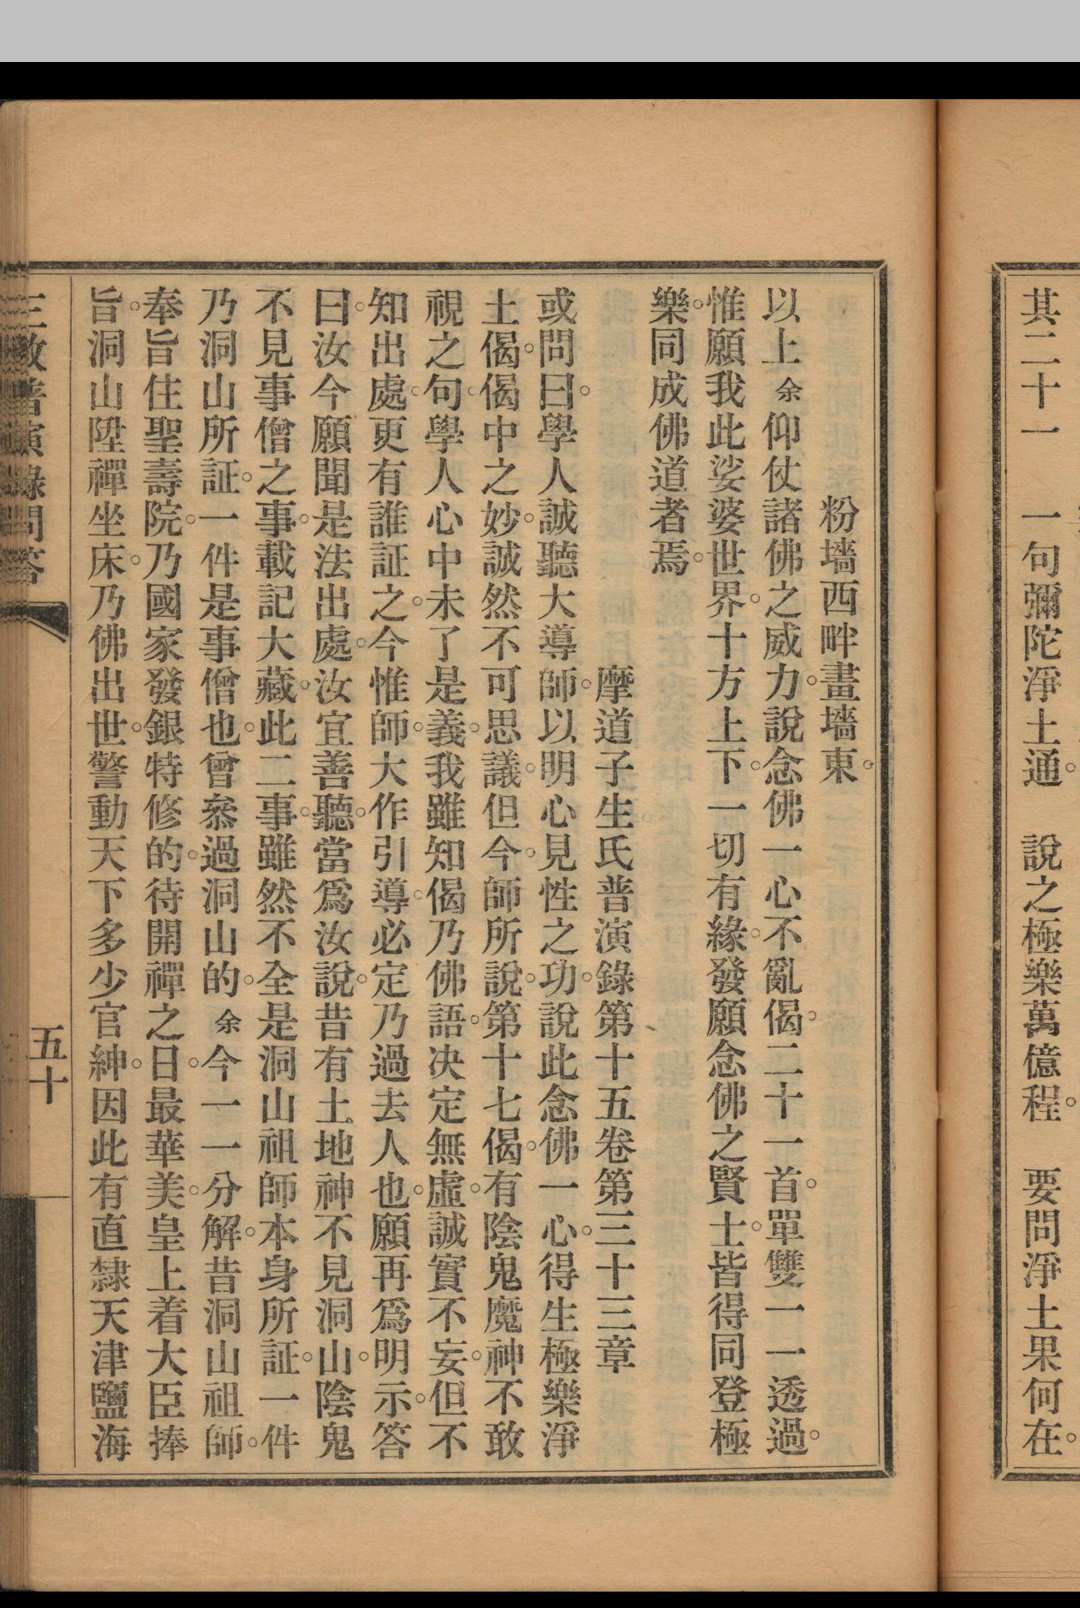 其二十一　一句彌陀淨土通。　說之極樂萬億程。　要問淨土果何在。
粉墻西畔畫墻東。
以上余仰仗諸佛之威力。說念佛一心不亂偈。二十一首。單雙一一透過。
惟願我此娑婆世界。十方上下。一切有緣。發願念佛之賢士。皆得同登極
樂。同成佛道者焉。
摩道子生氏普演錄第十五卷第三十三章
或問曰。學人誠聽大導師。以明心見性之功。說此念佛一心。得生極樂淨
土偈。偈中之妙。誠然不可思議。但今師所說。第十七偈。有陰鬼魔神不敢
視之句。學人心中未了是義。我雖知偈乃佛語。决定無虛。誠實不妄。但不
知出處。更有誰証之。今惟師。大作引導。必定乃過去人也。願再爲明示。答
曰。汝今願聞是法出處。汝宜善聽。當爲汝說。昔有土地神不見洞山。陰鬼
不見事僧之事。載記大藏。此二事。雖然不全是洞山祖師本身所証。一件
乃洞山所証。一件是事僧也。曾叅過洞山的。余今一一分解。昔洞山祖師。
奉旨住聖壽院。乃國家發銀特修的。待開禪之日。最華美。皇上着大臣捧
旨。洞山陞禪坐床。乃佛出世。警動天下多少官紳。因此有直隸天津鹽海
三教普演錄問答
五十